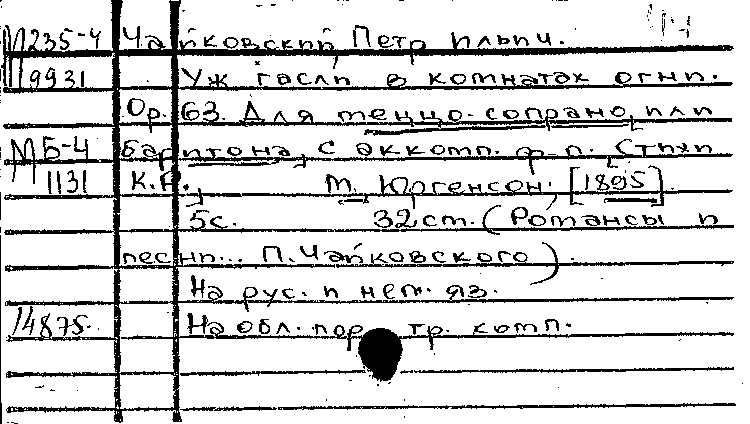 М235-4 Чайковский, Петр Ильич.
М9931 Уж гасли в комнатах огни.
Ор. 63. Для меццо-сопрано или
МБ-4 баритона, с аккомп. ф-п. Стихи
1131 К.Р. М. Юргенсон, [1895].
5с. 32 см. (Романсы и
песни... П. Чайковского).
На рус. и нем. яз.
14875. На обл. портр. комп.